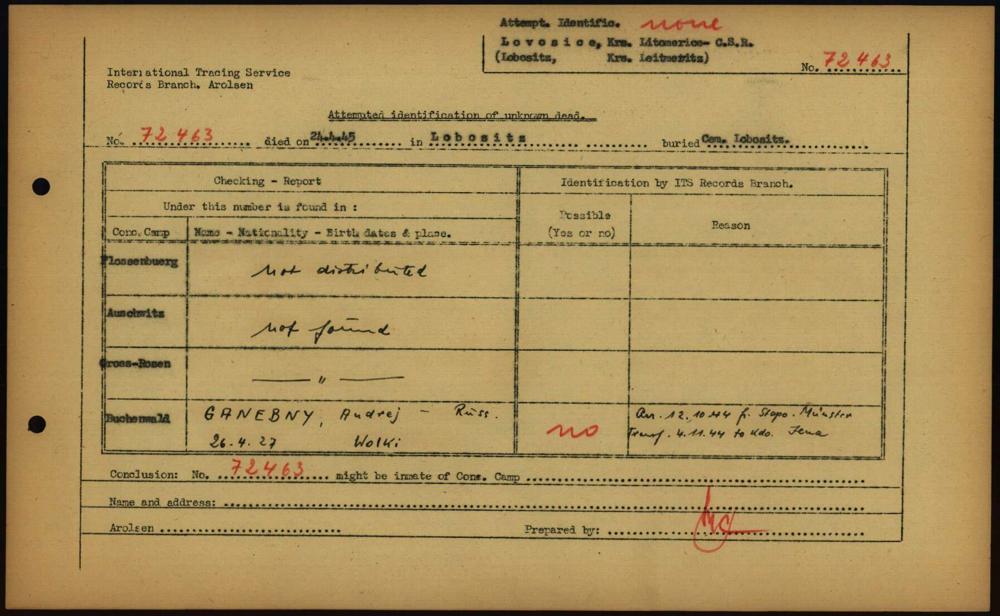 Attempt. Identific. none
Lovosice, Krs. Litomerice- C.S.R.
(Lobositz, Krs. Leitmeritz)
No. 72463
International Tracing Service
Records Branch. Arolsen
Attempted identification of unknown dead.
No. 72463 died on 24.4.45 in Lobositz buried Cem. Lobositz.
Checking - Report
Identification by ITS Records Branch.
Under this number is found in :
Possible
(Yes or no)
Reason
Conc. Camp
Name - Nationality - Birth dates & place.
Flossenbuerg
not distributed
Auschwitz
not found
Gross-Rosen
— " —
Buchenwald
GANEBNY, Andrej - Russ.
26.4.27 Wolki
no
Arr. 12.10.44 fr. Stapo. Münster
Transf. 4.11.44 to Kdo. Jena
Conclusion: No. 72463 might be inmate of Conc. Camp
Name and address:
Arolsen
Prepared by: